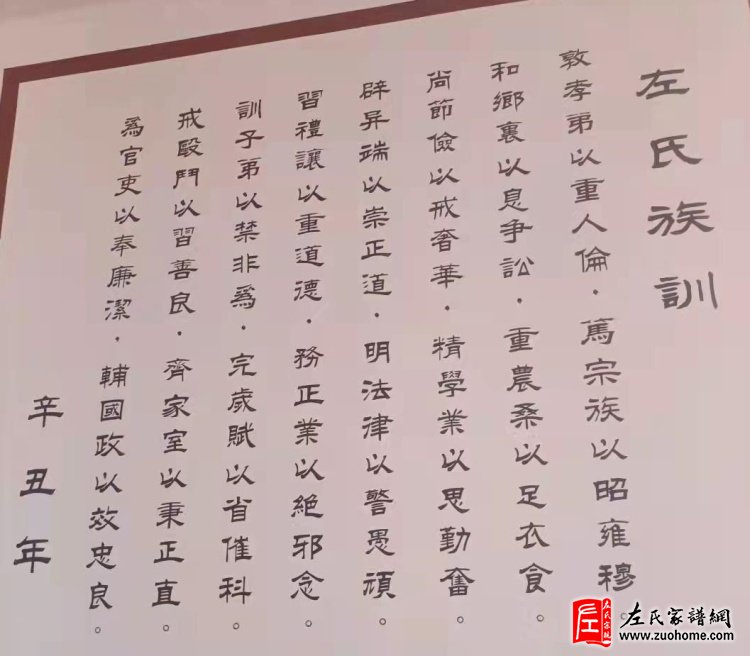 左氏族訓
敦孝弟以重人倫．篤宗族以昭雍穆。
和鄉裏以息争訟．重農桑以足衣食。
尚節儉以戒奢華．精學業以思勤奮。
辟异端以崇正道．明法律以警愚頑。
習禮讓以重道德．務正業以絕邪念。
訓子弟以禁非爲．完歲賦以省催科。
戒毆鬥以習善良．齊家室以秉正直。
爲官吏以奉廉潔．輔國政以效忠良。
辛丑年
左氏宗親
左氏家譜網
www.zuohome.com